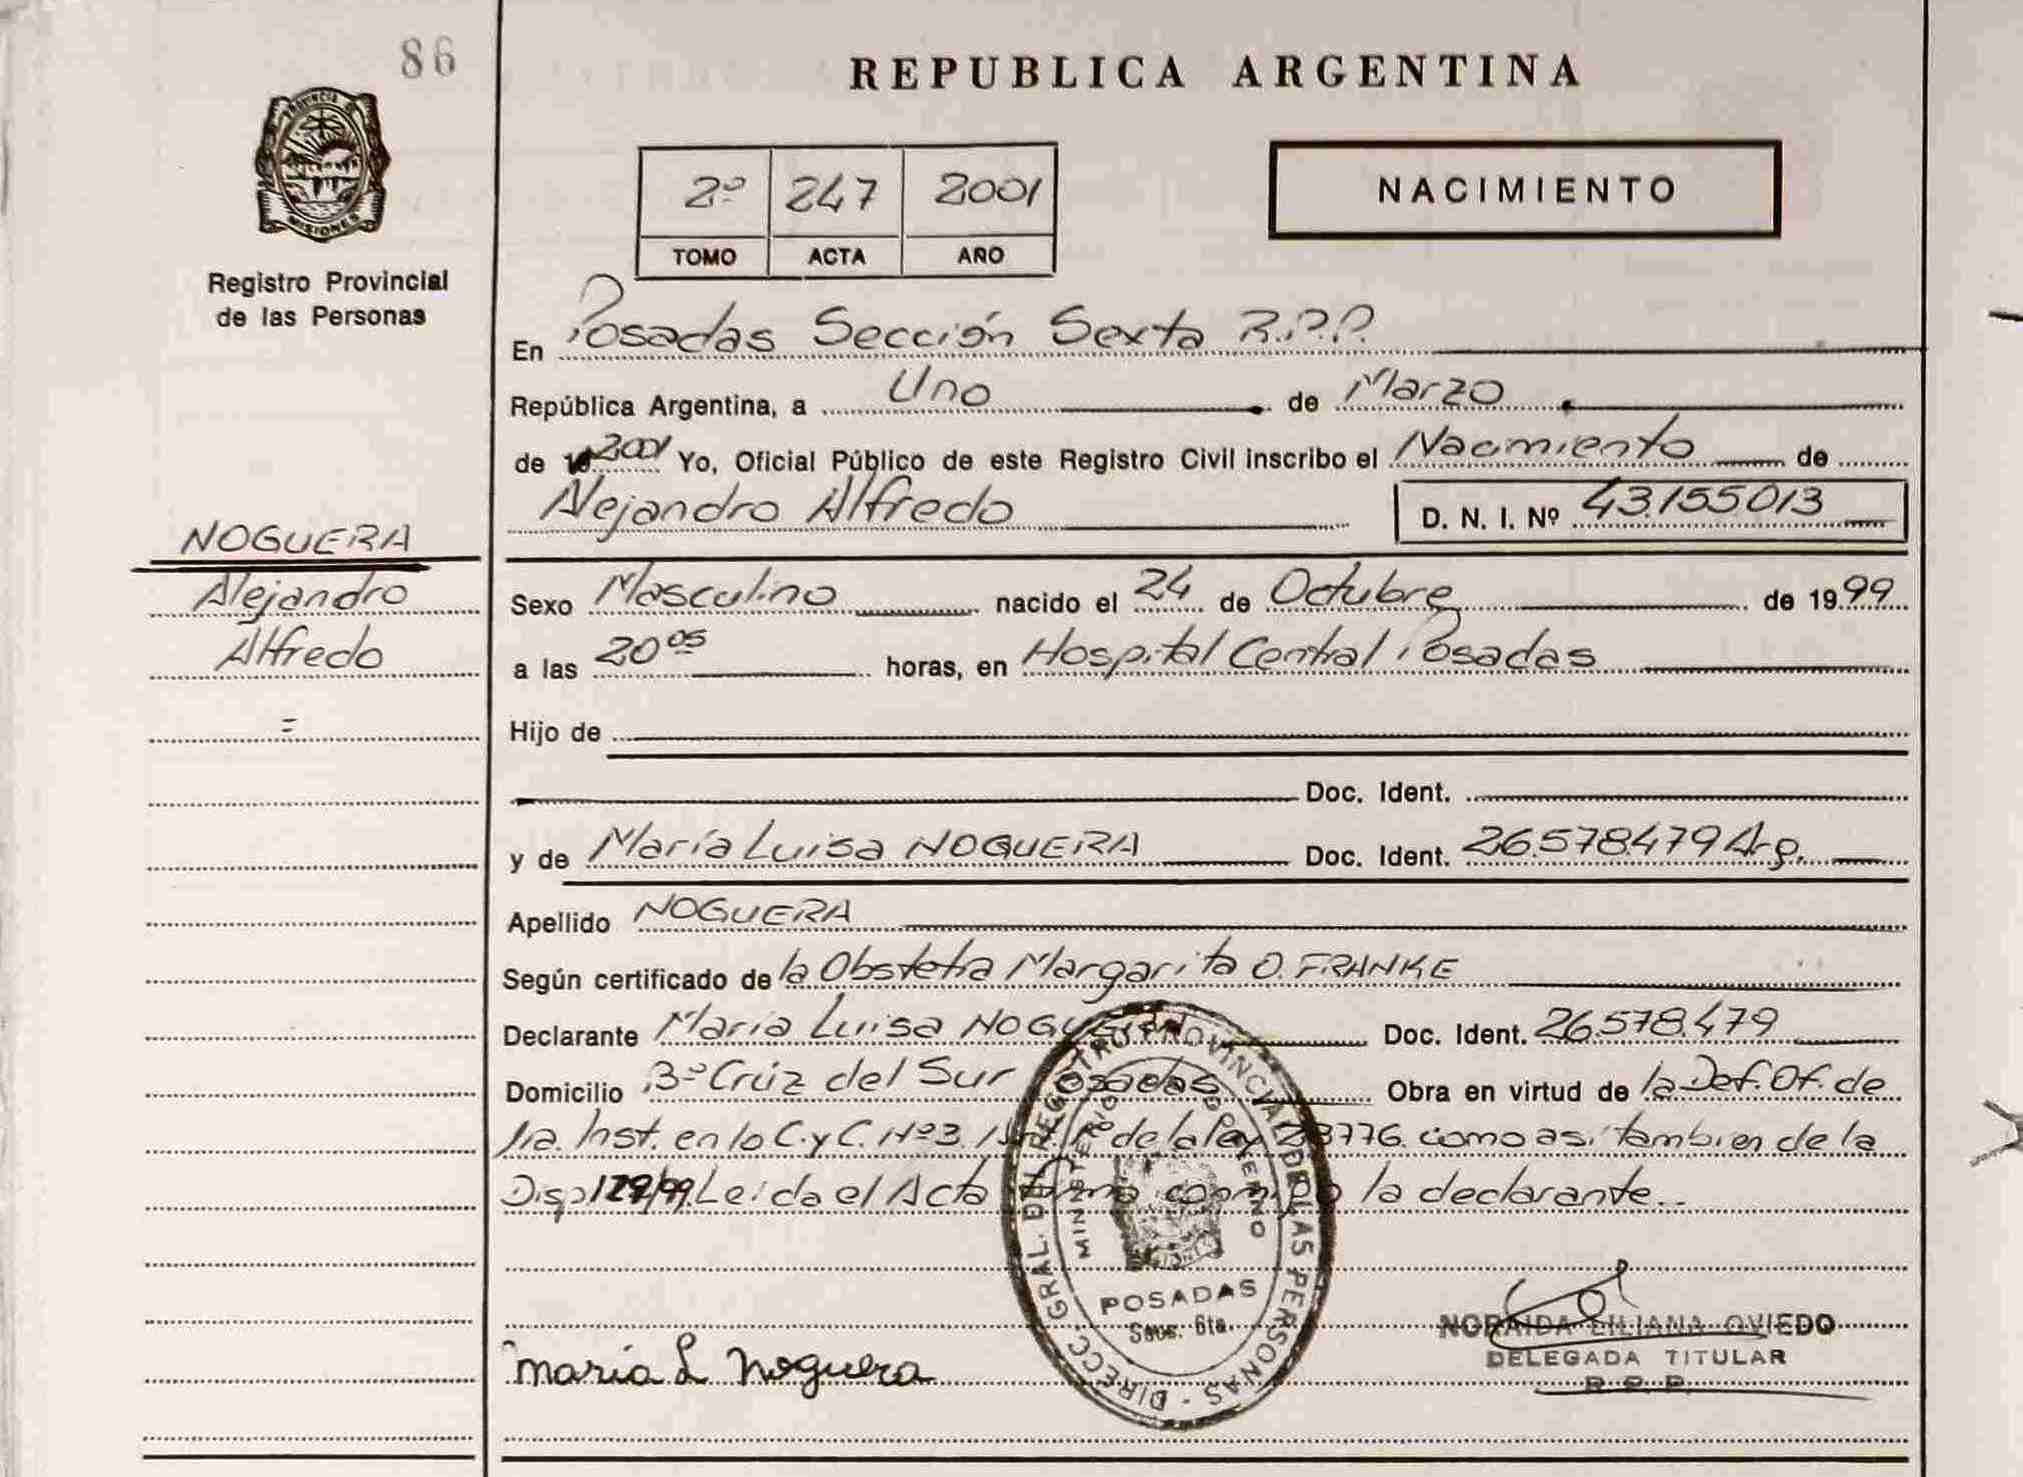 86
REPUBLICA ARGENTINA
PROVINCIA DE
MISIONES
Registro Provincial
de las Personas
2º 247 2001
TOMO ACTA AÑO
NACIMIENTO
En Posadas Sección Sexta R.P.P.
República Argentina, a Uno de Marzo
de 2001 Yo, Oficial Público de este Registro Civil inscribo el Nacimiento de
Alejandro Alfredo D. N. I. Nº 43.155.013
NOGUERA
Alejandro
Alfredo
=
Sexo Masculino nacido el 24 de Octubre de 1999
a las 20 05 horas, en Hospital Central Posadas
Hijo de
Doc. Ident.
y de María Luisa NOGUERA Doc. Ident. 26.578.479 Arg.
Apellido NOGUERA
Según certificado de la Obstetra Margarita O. FRANKE
Declarante María Luisa NOGUERA Doc. Ident. 26.578.479
Domicilio Bº Crúz del Sur Posadas Obra en virtud de la Def. Of. de
1ra. Inst. en lo C. y C. Nº 3. de la ley 23776. como así también de la
Disp 129/99. Leída el Acta firma conmigo la declarante..
DIRECC. GRAL. DEL REGISTRO PROVINCIAL DE LAS PERSONAS
MINISTERIO DE GOBIERNO
POSADAS
Secc. 6ta.
maría L Noguera
NORAIDA LILIANA OVIEDO
DELEGADA TITULAR
R. P. P.